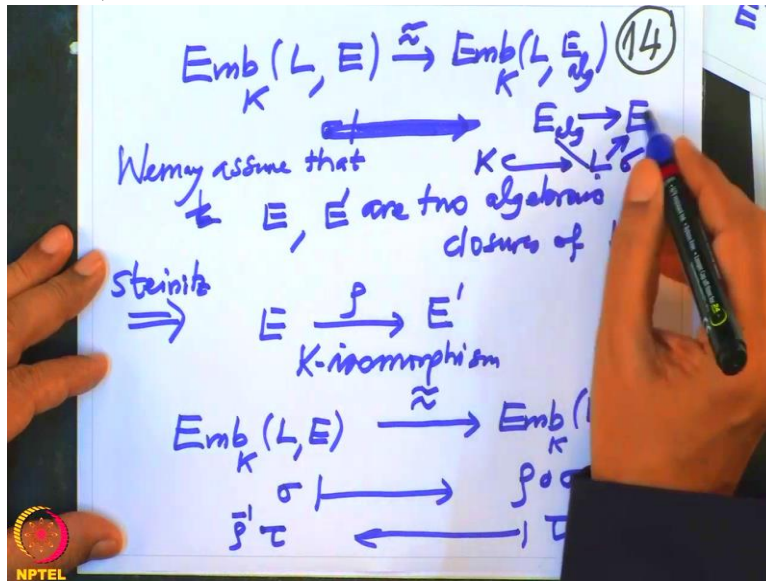 Emb_K (L, E) ≈→ Emb_K (L, E_alg) 14
E_alg → E
We may assume that K ↪ L σ
E, E' are two algebraic
closures of
Steinitz
⟹ E —ρ→ E'
K-isomorphism
Emb_K (L, E) ≈→ Emb_K (
σ ↦ ρ∘
ρ^{-1} τ ⟵ τ
NPTEL